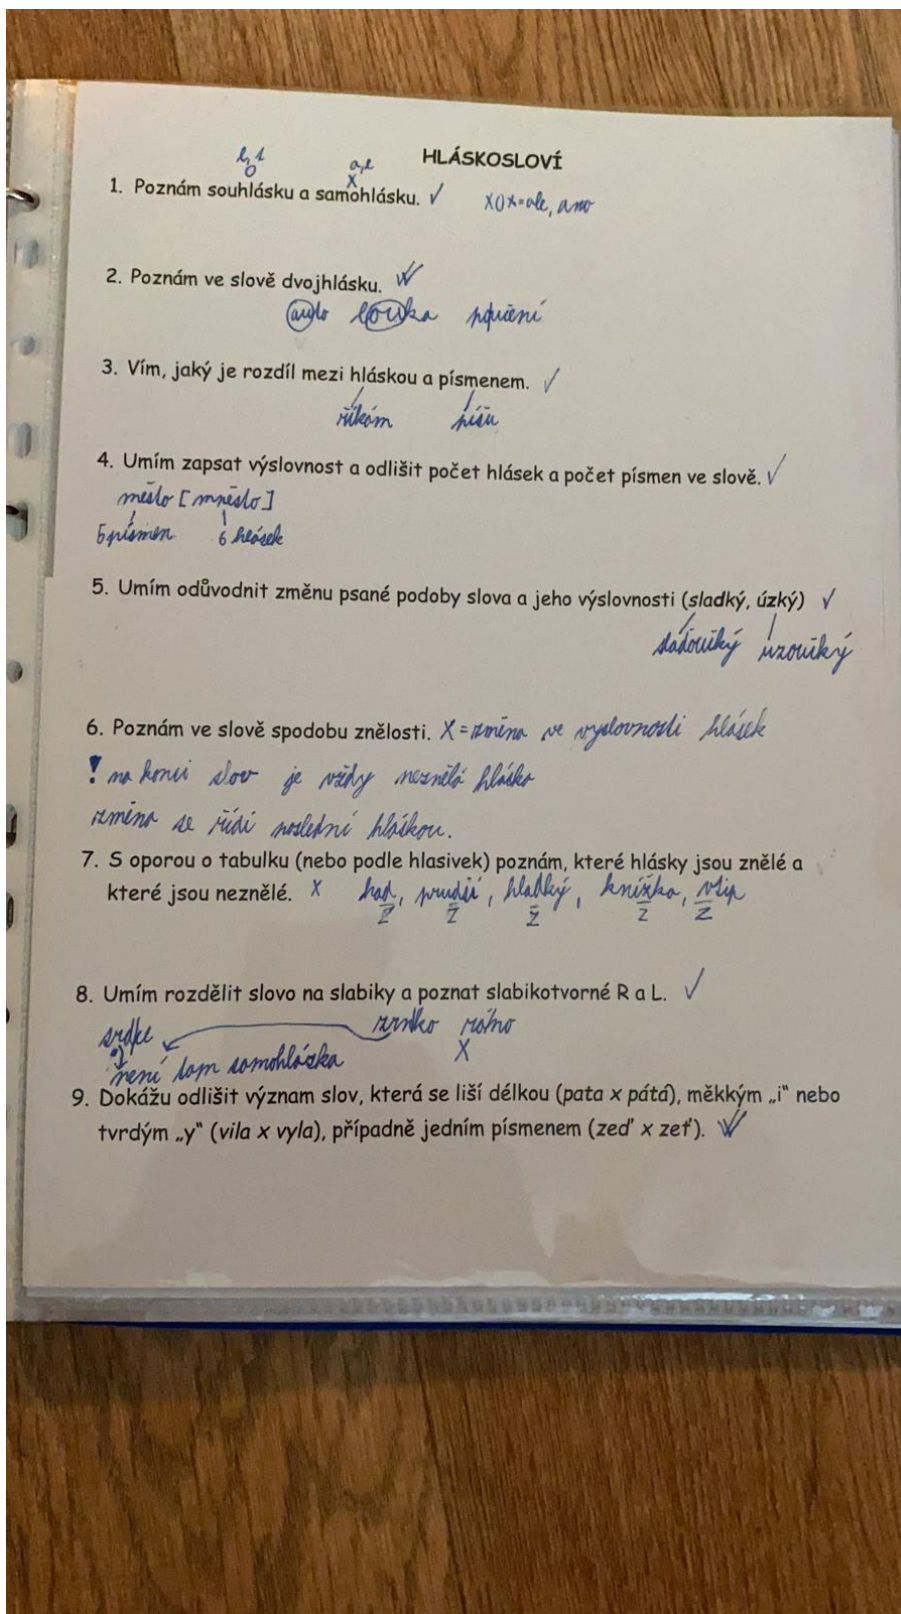 HLÁSKOSLOVÍ
a, e
O
X
1. Poznám souhlásku a samohlásku. ✓ XOX=ale, ano
2. Poznám ve slově dvojhlásku.
auto louka
3. Vím, jaký je rozdíl mezi hláskou a písmenem. ✓
říkám píšu
4. Umím zapsat výslovnost a odlišit počet hlásek a počet písmen ve slově. ✓
město [mněsto]
5 písmen 6 hlásek
5. Umím odůvodnit změnu psané podoby slova a jeho výslovnosti (sladký, úzký) ✓
slaďoučký uzoučký
6. Poznám ve slově spodobu znělosti. X = změna ve vyslovnosti hlásek
! na konci slov je vždy neznělá hláska
změna se řídí poslední hláskou.
7. S oporou o tabulku (nebo podle hlasivek) poznám, které hlásky jsou znělé a
které jsou neznělé. X had, prudší, hladký, knížka, vtip
Z Z Z Z Z
8. Umím rozdělit slovo na slabiky a poznat slabikotvorné R a L. ✓
srdce zrnko ráno
X
není tam samohláska
9. Dokážu odlišit význam slov, která se liší délkou (pata x pátá), měkkým „i“ nebo
tvrdým „y“ (vila x vyla), případně jedním písmenem (zeď x zeť).